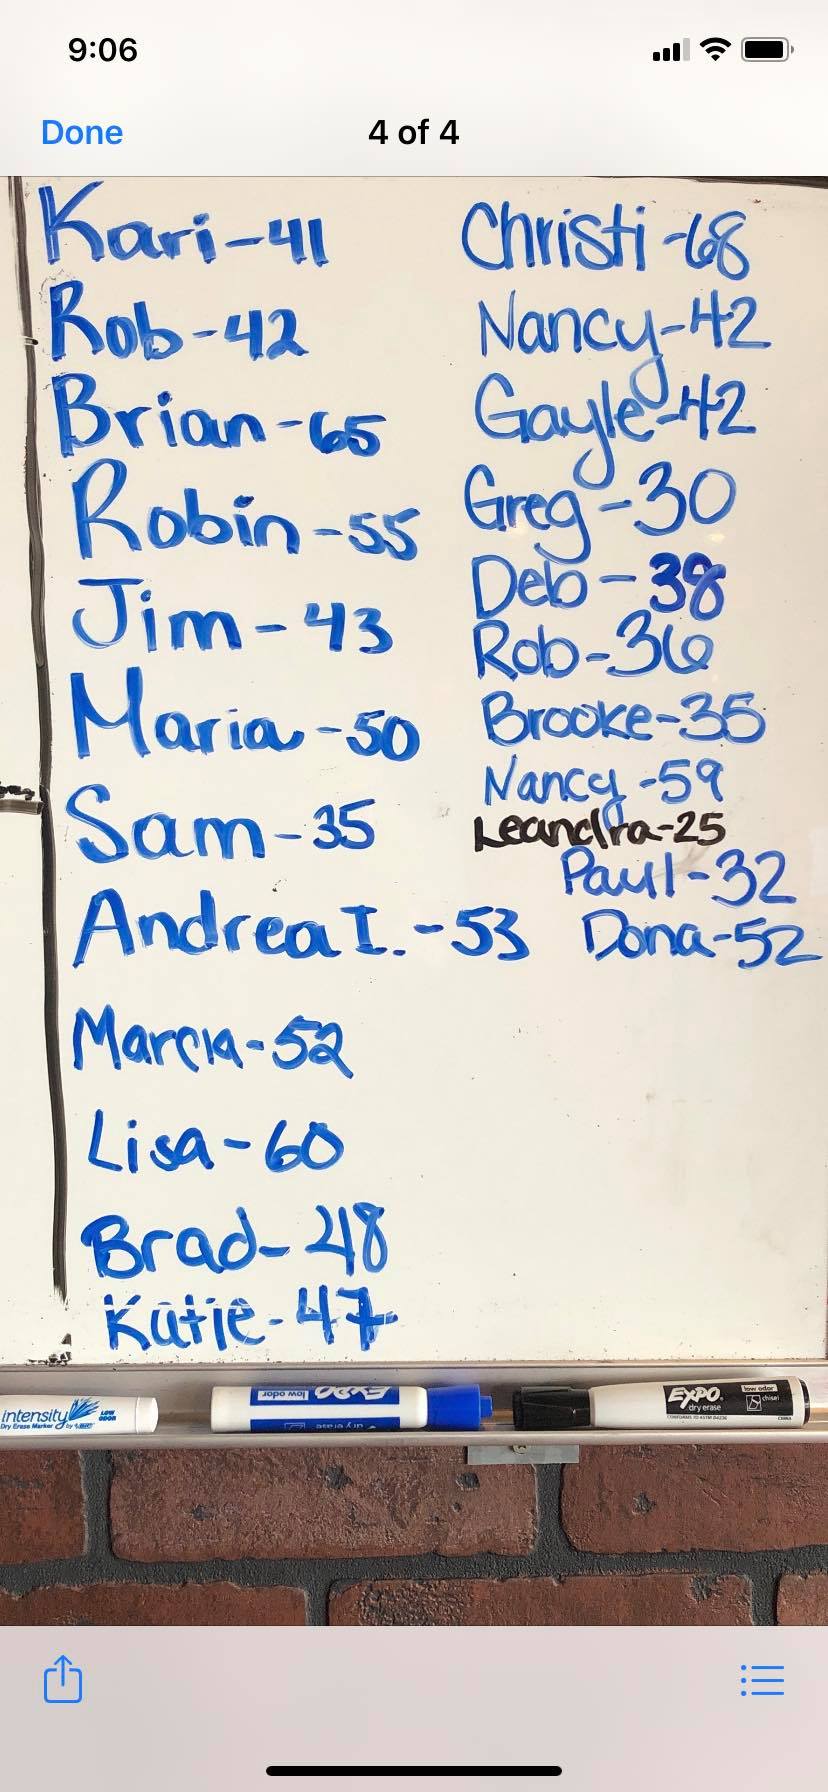 9:06
Done
4 of 4
Kari-41
Rob-42
Brian-65
Robin-55
Jim-43
Maria-50
Sam-35
Andrea I.-53
Marcia-52
Lisa-60
Brad-48
Katie-47
Christi-68
Nancy-42
Gayle-42
Greg-30
Deb-38
Rob-36
Brooke-35
Nancy-59
Leandra-25
Paul-32
Dona-52
intensity LOW ODOR
Dry Erase Marker by BIC
EXPO low odor
dry erase
EXPO low odor
dry erase chisel
CONFORMS TO ASTM D4236
CHINA